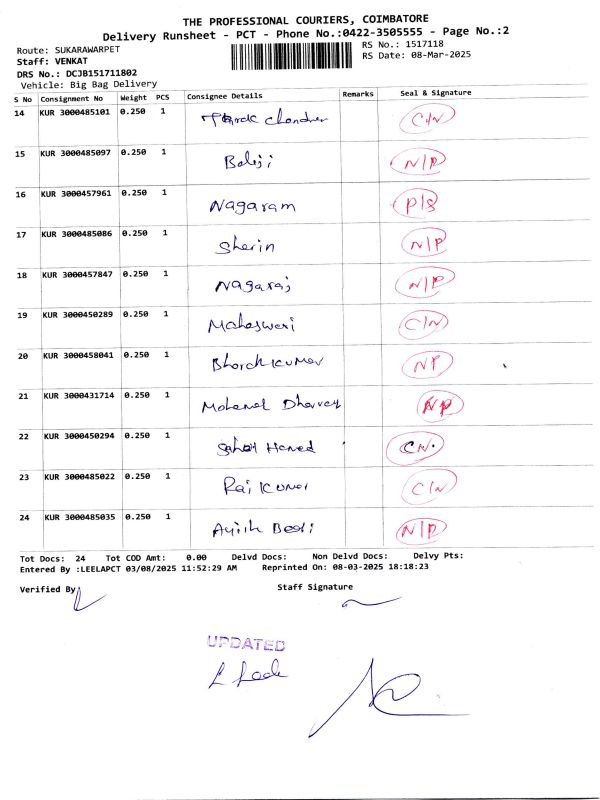 THE PROFESSIONAL COURIERS, COIMBATORE
Delivery Runsheet - PCT - Phone No.:0422-3505555 - Page No.:2
Route: SUKARAWARPET
RS No.: 1517118
Staff: VENKAT
RS Date: 08-Mar-2025
DRS No.: DCJB151711802
Vehicle: Big Bag Delivery
S No Consignment No Weight PCS Consignee Details Remarks Seal & Signature
14 KUR 3000485101 0.250 1 Chander C/N
15 KUR 3000485097 0.250 1 Balaji N/P
16 KUR 3000457961 0.250 1 Nagaram P/S
17 KUR 3000485086 0.250 1 Sherin N/P
18 KUR 3000457847 0.250 1 Nagaraj N/P
19 KUR 3000450289 0.250 1 Maheswari C/N
20 KUR 3000458041 0.250 1 Bharath Kumar NP
21 KUR 3000431714 0.250 1 Mohamed NP
22 KUR 3000450294 0.250 1 Hamed CN.
23 KUR 3000485022 0.250 1 Raj Kumar C/N
24 KUR 3000485035 0.250 1 N/P
Tot Docs: 24 Tot COD Amt: 0.00 Delvd Docs: Non Delvd Docs: Delvy Pts:
Entered By :LEELAPCT 03/08/2025 11:52:29 AM Reprinted On: 08-03-2025 18:18:23
Verified By
Staff Signature
UPDATED